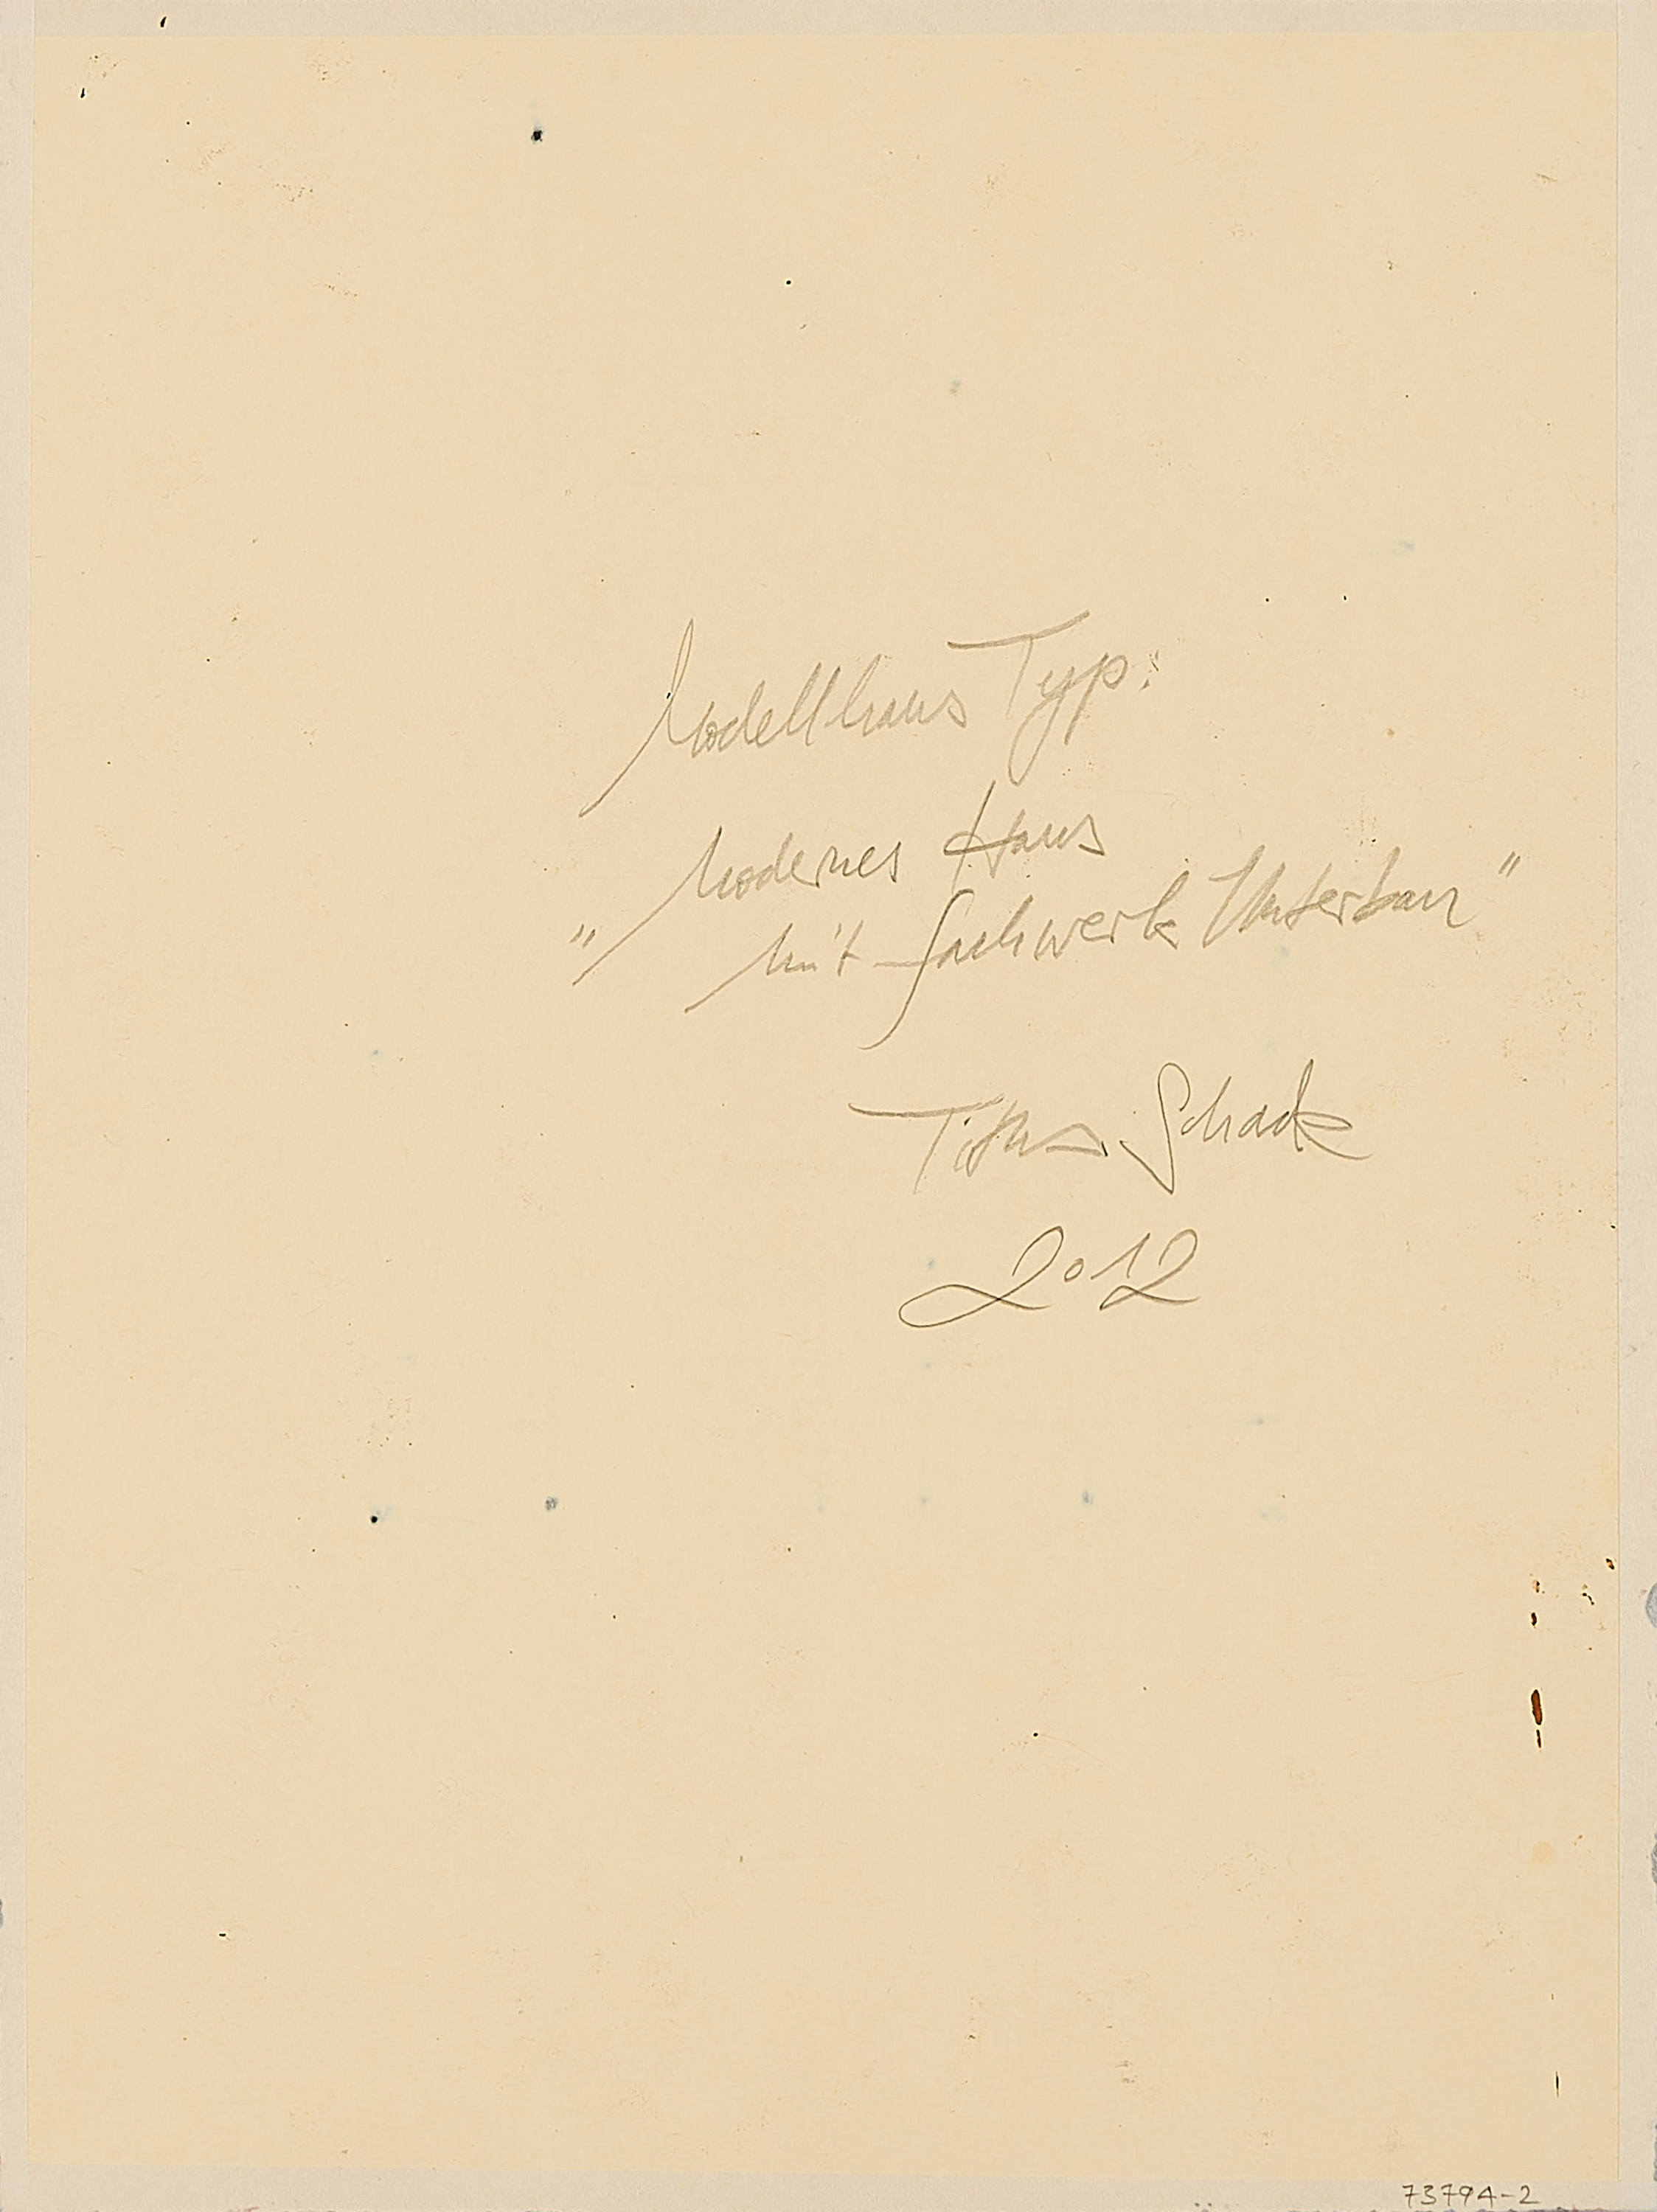 Modellhaus Typ:
"Modernes Haus
mit Fachwerk Unterbau"
Titus Schade
2012
73794-2